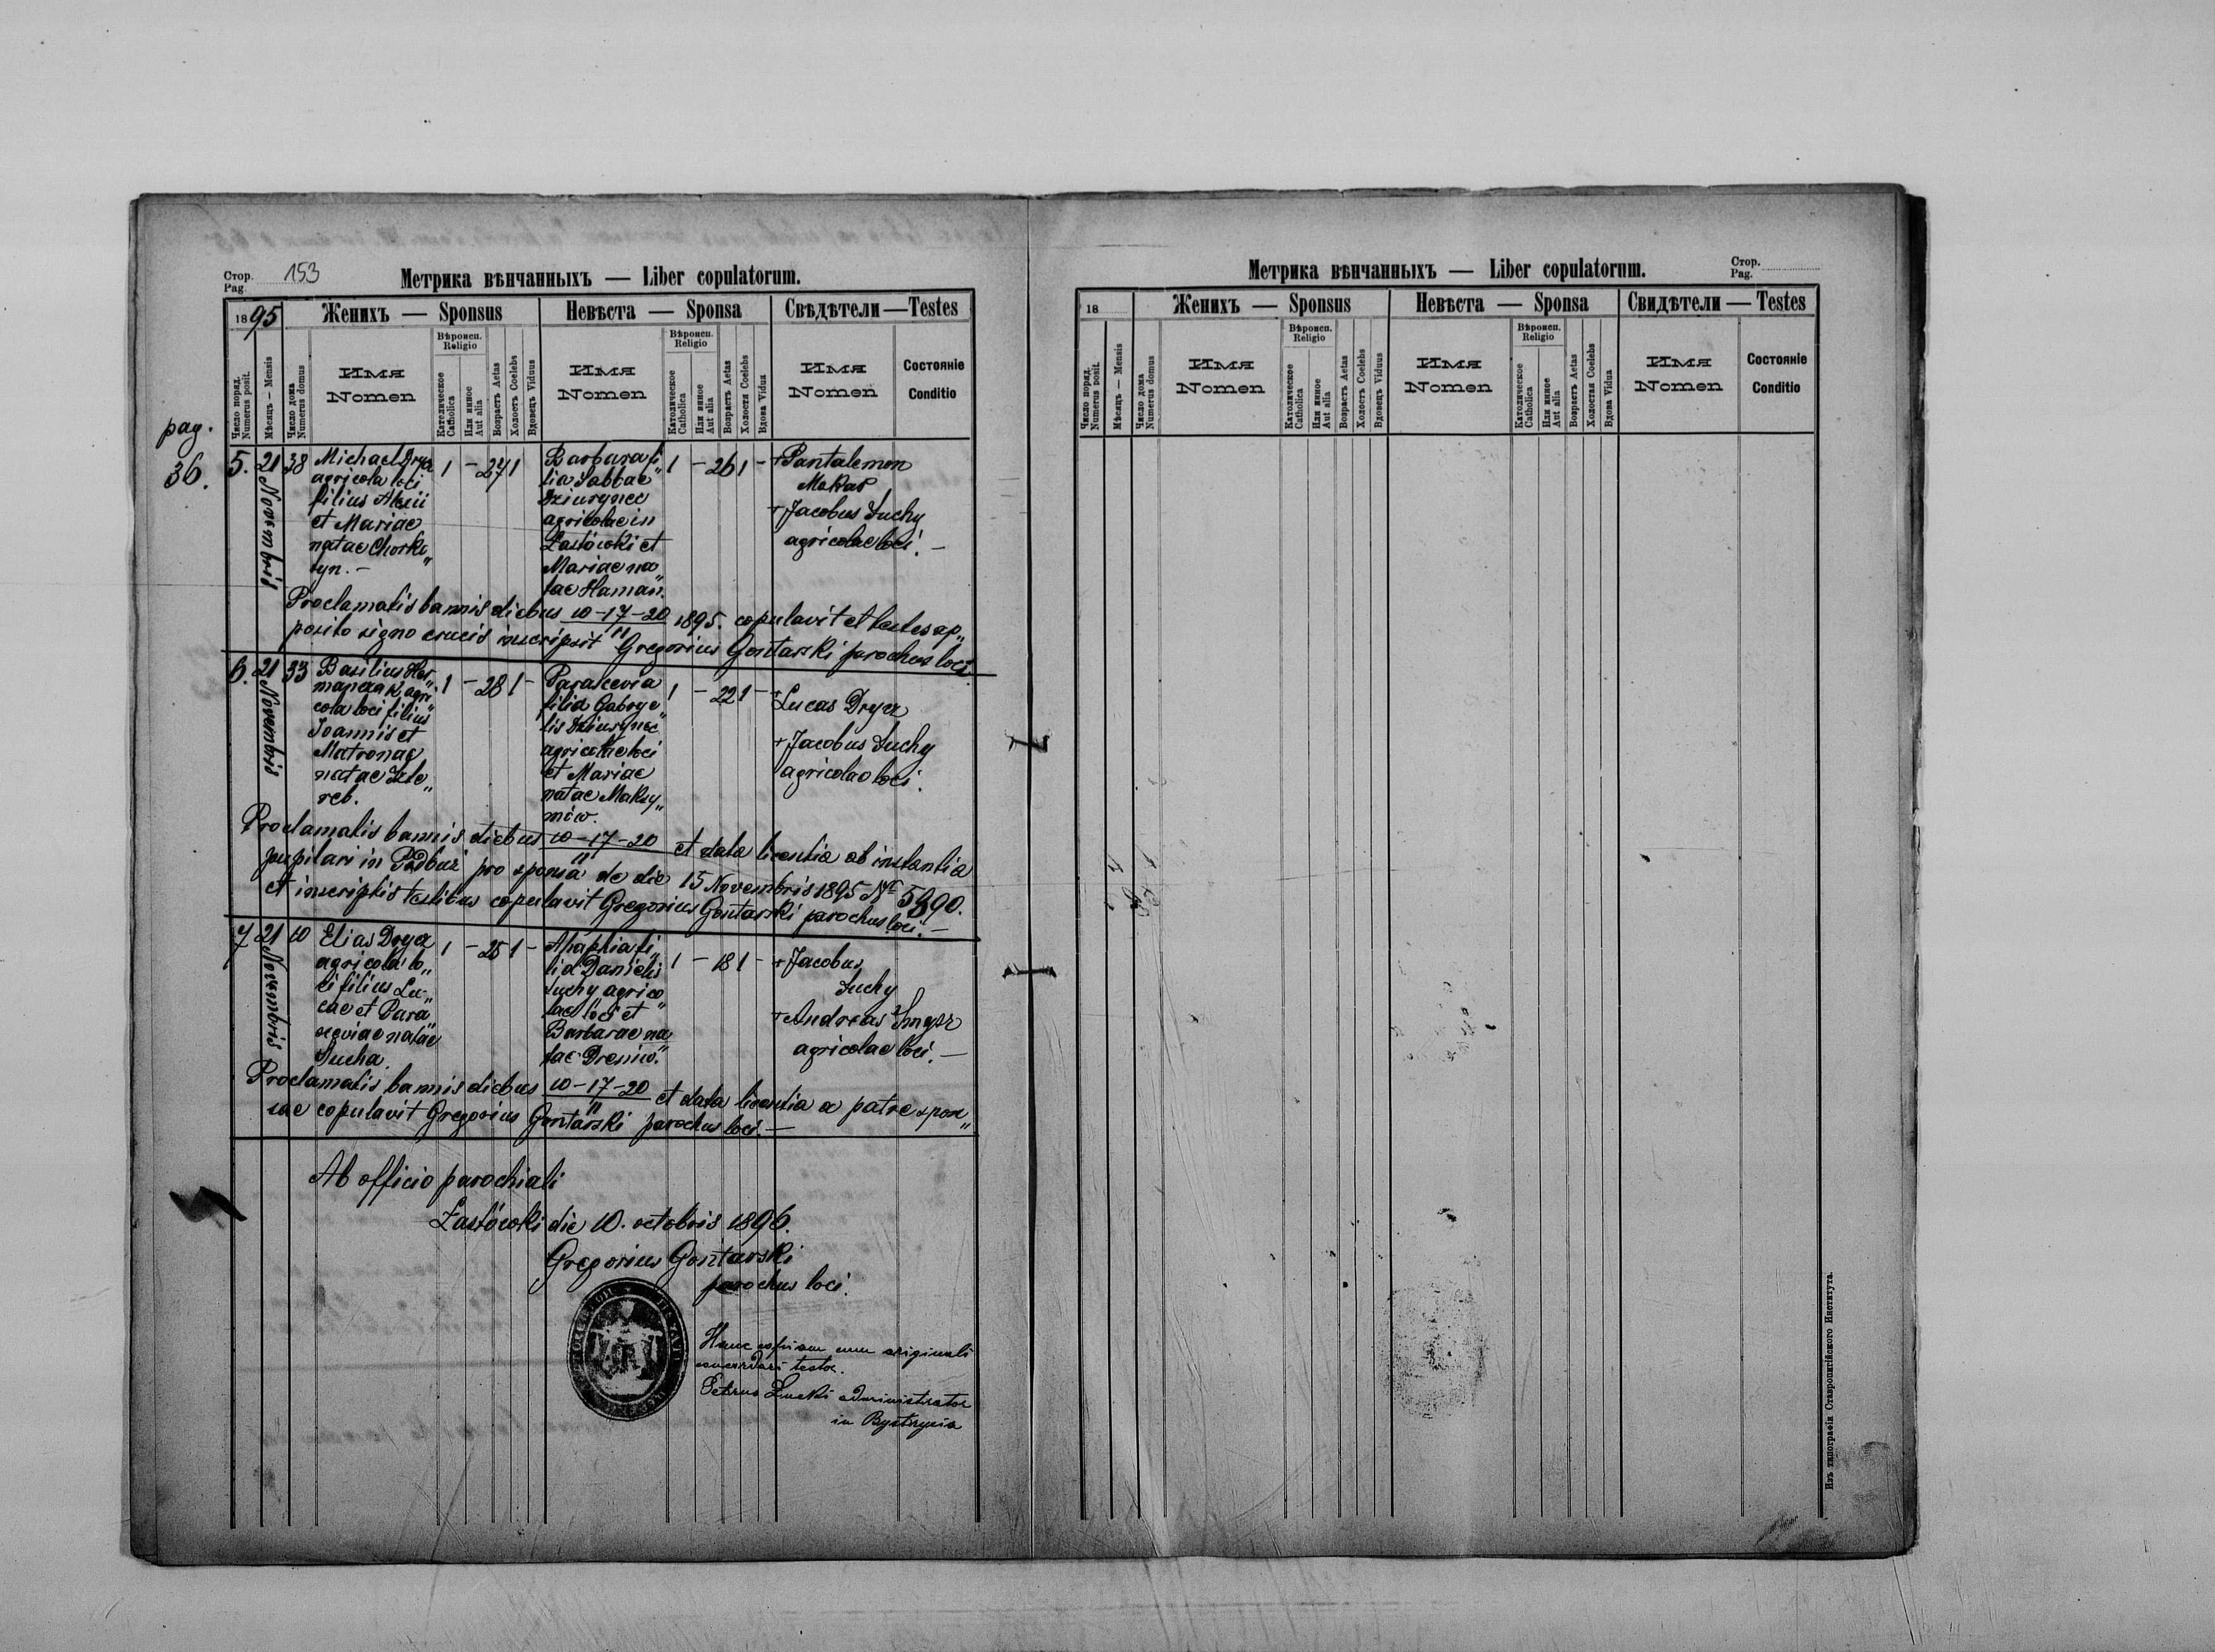 Стор.
Pag. 153
Метрика вѣнчанныхъ — Liber copulatorum.
1895
Женихъ — Sponsus
Невѣста — Sponsa
Свѣдѣтели — Testes
Число поряд.
Numerus posit.
Мѣсяцъ — Mensis
Число дома
Numerus domus
Имя
Nomen
Вѣроисп.
Religio
Католическое
Catholica
Или иное
Aut alia
Возрастъ Aetas
Холостъ Coelebs
Вдовецъ Viduus
Имя
Nomen
Вѣроисп.
Religio
Католическое
Catholica
Или иное
Aut alia
Возрастъ Aetas
Холостя Coelebs
Вдова Vidua
Имя
Nomen
Состояніе
Conditio
pag.
36.
5. 21 Novembris 38
Michael Dryer
agricola loci
filius Alexii
et Mariae
natae Chorko„
tyn. —
1 — 27 1
Barbara fi„
lia Sabbae
Dziurynec
agricolae in
Łastówki et
Mariae na„
tae Haman.
1 — 26 1 —
+ Pantalemon
Makar
+ Jacobus Suchy
agricolae loci. —
Proclamatis bannis diebus 10–17–20 1895. copulavit et testes ap„
11
posito signo crucis inscripsit Gregorius Gontarski parochus loci.
6. 21 Novembris 33
Basilius
agri„
cola loci filius
Joannis et
Matronae
natae
1 — 28 1 —
Parascevia
filia Gabrye„
lis Dziurynec
agricolae loci
et Mariae
natae Maksy„
mów.
1 — 22 1 —
+ Lucas Dryer
+ Jacobus Suchy
agricolae loci.
Proclamatis bannis diebus 10–17–20 et data licentia ab instantia
11
pupilari in Podbuż pro sponsa de die 15 Novembris 1895 Nr 5890.
et inscriptis testibus copulavit Gregorius Gontarski parochus loci. —
7 21 Novembris 10
Elias Dryer
agricola lo„
ci filius Lu„
cae et Para„
sceviae natae
Sucha.
1 — 25 1 —
Ahaphia fi„
lia Danielis
Suchy agrico„
lae loci et
Barbarae na„
tae
1 — 18 1 —
+ Jacobus
Suchy
+ Andreas
agricolae loci. —
Proclamatis bannis diebus 10–17–20 et data licentia a patre spon„
11
sae copulavit Gregorius Gontarski parochus loci. —
Ab officio parochiali
Łastówki die 10. octobris 1896.
Gregorius Gontarski
parochus loci.
Hanc copiam cum originali
concordari testor.
Petrus administrator
in Bystrycia
Метрика вѣнчанныхъ — Liber copulatorum.
Стор.
Pag.
18
Женихъ — Sponsus
Невѣста — Sponsa
Свидѣтели — Testes
Число поряд.
Numerus posit.
Мѣсяцъ — Mensis
Число дома
Numerus domus
Имя
Nomen
Вѣроисп.
Religio
Католическое
Catholica
Или иное
Aut alia
Возрастъ Aetas
Холостъ Coelebs
Вдовецъ Viduus
Имя
Nomen
Вѣроисп.
Religio
Католическое
Catholica
Или иное
Aut alia
Возрастъ Aetas
Холостая Coelebs
Вдова Vidua
Имя
Nomen
Состояніе
Conditio
Изъ типографіи Ставропигійского Института.